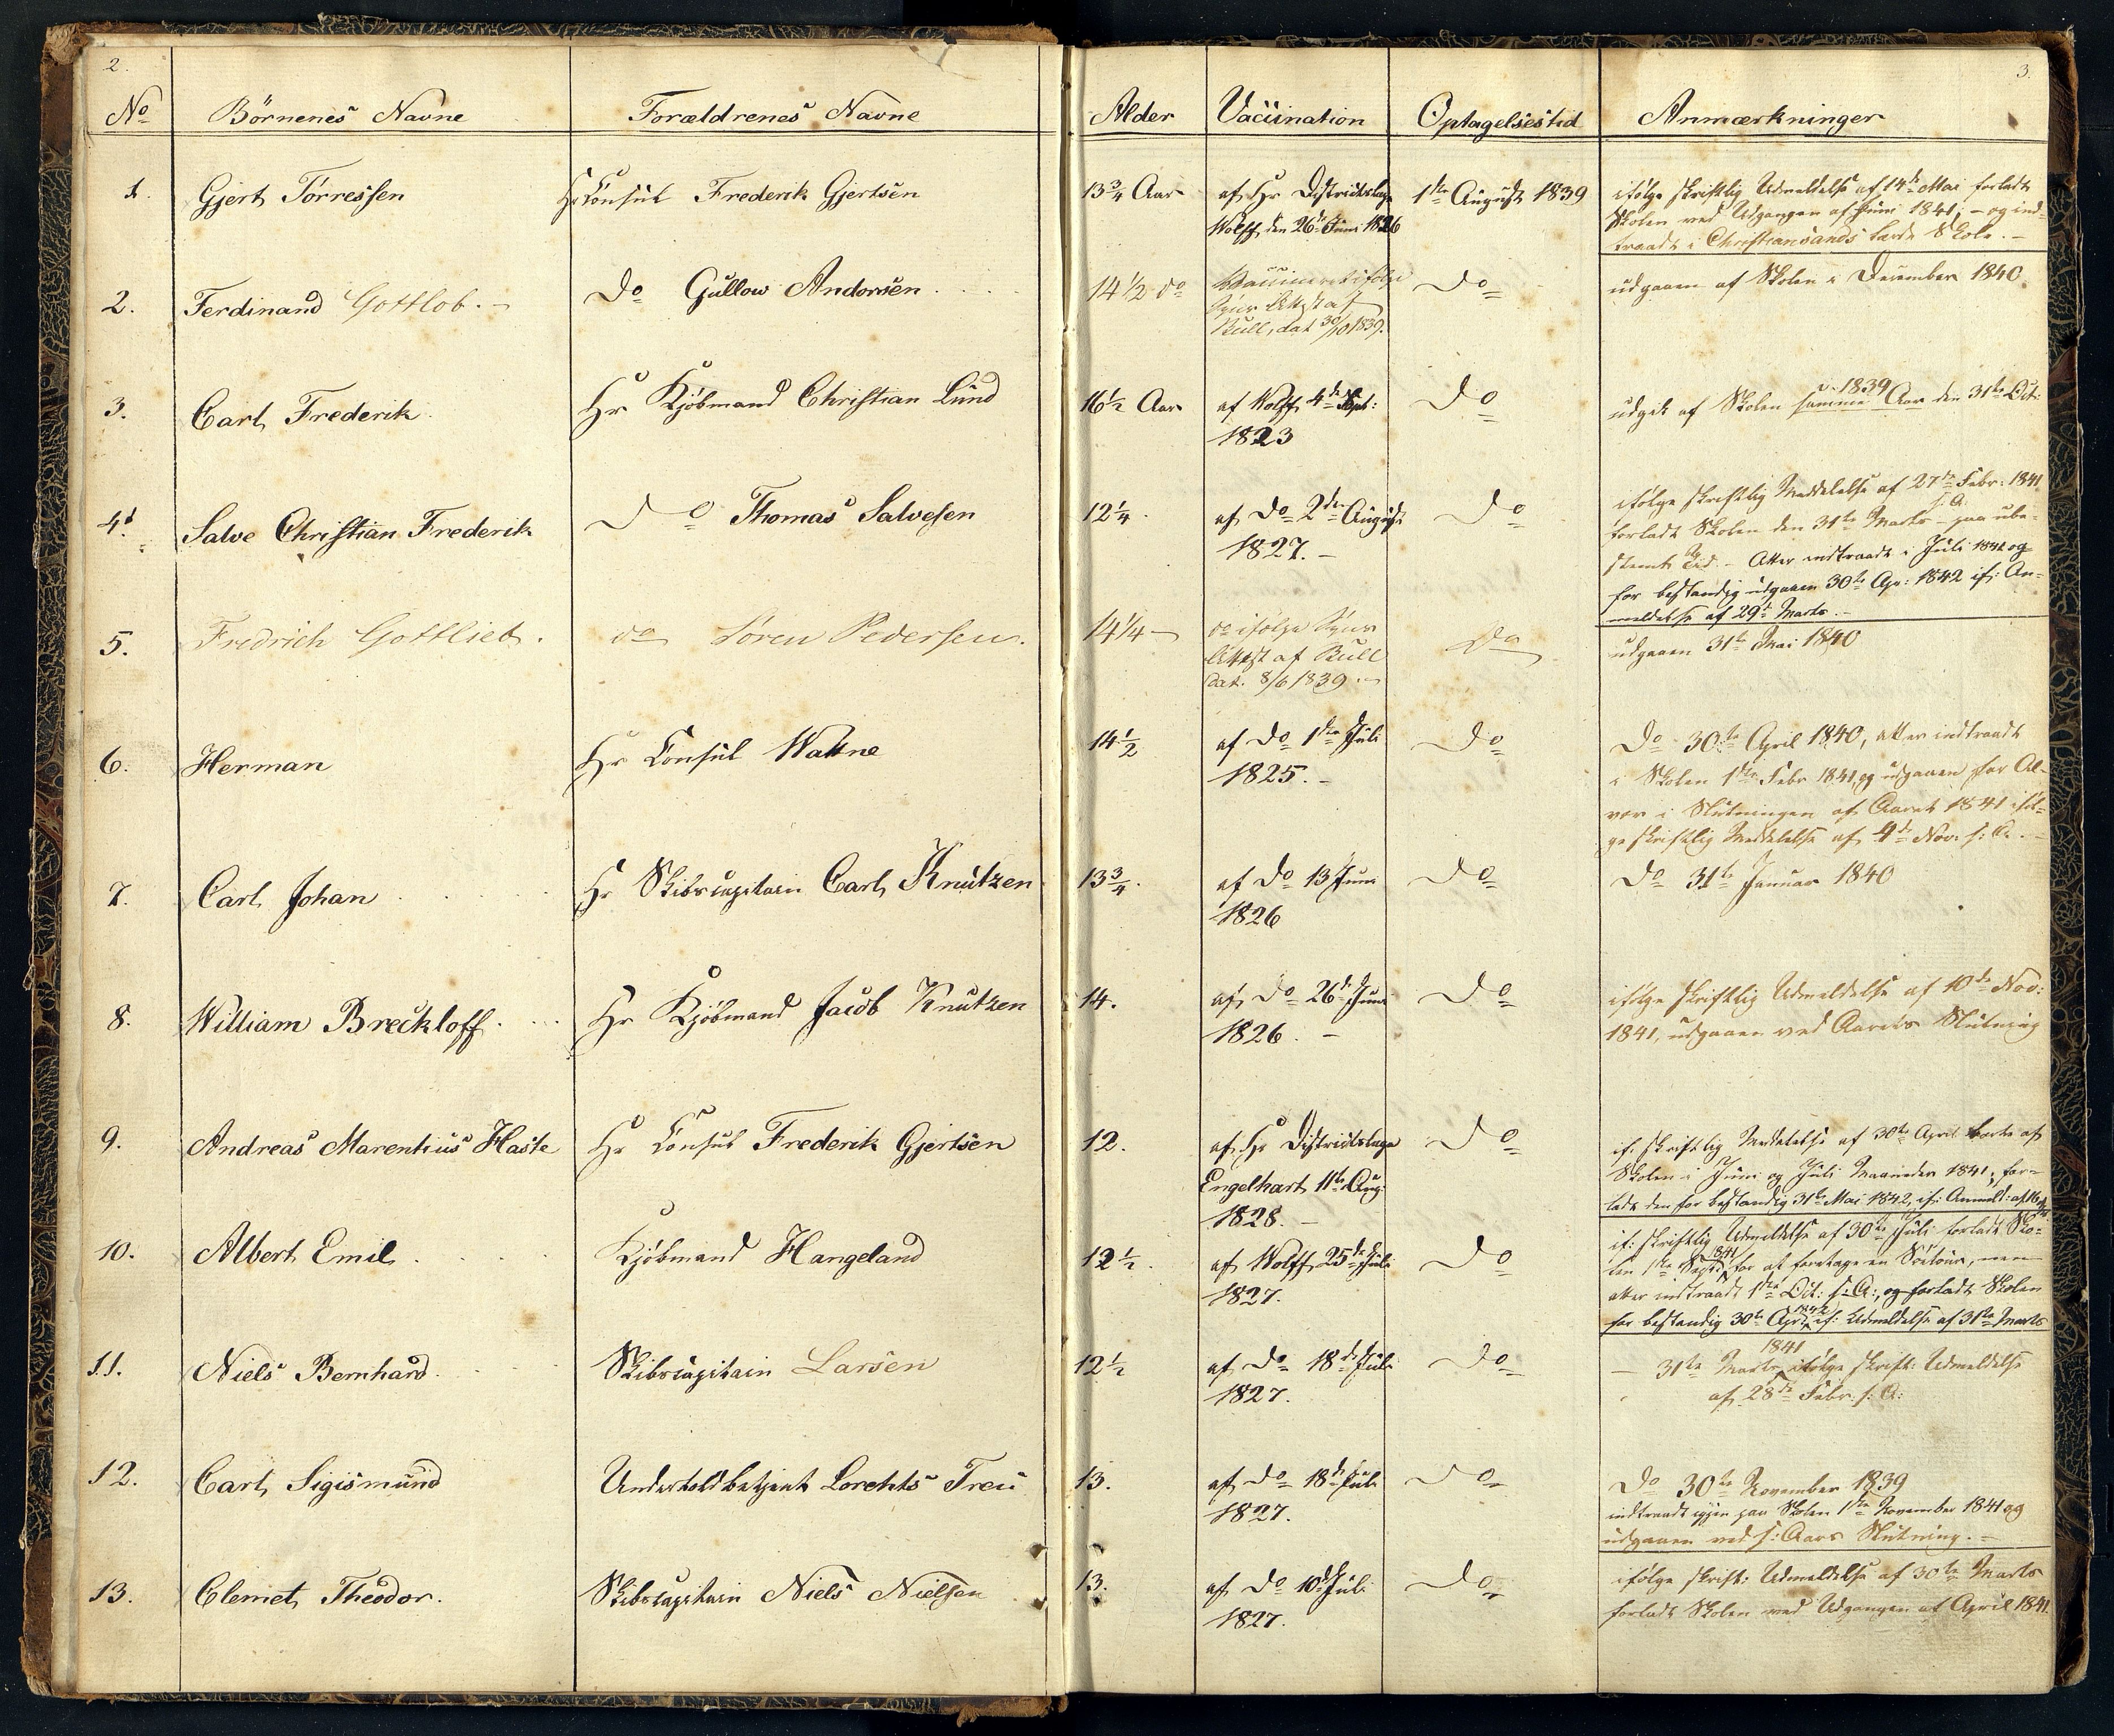 2.
3.
No Börnenes Navne Forældrenes Navne Alder Vaccination Optagelsestid Anmærkninger
1. Gjert Törressen Hr Consul Frederik Gjertsen 13 3/4 Aar af Hr Districtslæge 1ste August 1839 ifølge skriftlig Udmeldelse af 14de Mai forladt
Wolff den 26de Juni 1826 Skolen ved Udgangen af Juni 1841; - og ind-
traadt i Christiansands lærde Skole. -
2. Ferdinand Gottlob. - Do Gullow Andersen 14 1/2 do Vaccineret ifølge Do udgaaen af Skolen i December 1840.
Attest af
Bull, dat 30/10 1839.
3. Carl Frederik Hr Kjöbmand Christian Lund 16 1/2 Aar af Wolff 4de Sept: Do udgik af Skolen samme Aar 1839 den 31te Oct:
1823
4. Salve Christian Frederik Do Thomas Salvesen 12 1/4. af Do 2den August Do ifølge skriftlig Meddelelse af 27de Febr: 1841
1827. - forladt Skolen den 31te Marts s. A. - paa ube-
stemt Tid. - Atter indtraadt i Juli 1841 og
for bestandig udgaaen 30te Apr: 1842 if: An-
meldelse af 29de Marts. -
5. Fredrich Gottlieb. do Sören Pedersen. 14 1/4 - do ifølge Do udgaaen 31te Mai 1840
Attest af Bull
dat. 8/6 1839. -
6. Herman Hr Consul Wattne 14 1/2 af Do 1ste Juli Do Do 30te April 1840, atter indtraadt
1825. - i Skolen 1ste Febr 1841, og udgaaen for Al-
vor i Slutningen af Aaret 1841 iføl-
ge skriftlig Meddelelse af 4de Nov. s: A. -
7. Carl Johan Hr Skibscapitain Carl Knutzen 13 3/4. af Do 13 Juni Do Do 31te Januar 1840
1826
8. William Breckloff Hr Kjöbmand Jacob Knutzen 14. af Do 26de Juni Do ifølge skriftlig Udmeldelse af 10de Nov:
1826. - 1841, udgaaen ved Aarets Slutning
9. Andreas Marentius Haste Hr Consul Frederik Gjertsen 12. af Hr Districtslæge Do if. skriftlig Meddelelse af 30te April borte af
Engelhart 11te Aug: Skolen i Juni og Juli Maaneder 1841, for-
1828. - lod den for bestandig 31te Mai 1842, if: Anmeld: af
10. Albert Emil Kjöbmand Hangeland 12 1/2. af Wolff 25de Juli Do if: skriftlig Udmeldelse af 30te Juli forladt Sko-
1827. len 1ste Sept: 1841 for at foretage en Söetour, men
atter indtraadt 1ste Oct: s: A:, og forladt Skolen
for bestandig 30te Apr: 1842 if: Udmeldelse af 31te Marts
11. Niels Bernhard. Skibscapitain Larsen 12 1/2 af Do 18de Juli Do - 31te Marts 1841 ifølge skriftl: Udmeldelse
1827. af 28de Febr. s: A:
12. Carl Sigismund Undertoldbetjent Lorentz Treu 13. af Do 18de Juli Do Do 30te November 1839
1827. indtraadt igjen paa Skolen 1ste November 1841 og
udgaaen ved s: Aars Slutning. -
13. Clemet Theodor. Skibscapitain Niels Nielsen 13. af Do 10de Juli Do ifølge skriftl: Udmeldelse af 30te Marts
1827. forladt Skolen ved Udgangen af April 1841.